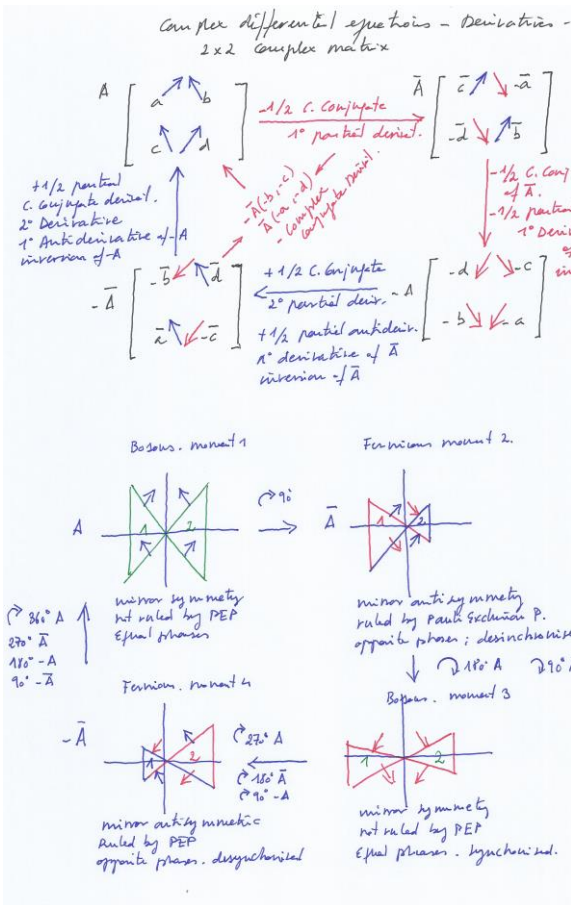 Complex differential equations - Derivatives -
2x2 complex matrix
A
a b
c d
-1/2 C. Conjugate
1° partial derivat.
Ā
c̄ -ā
-d̄ b̄
+1/2 partial
C. Conjugate derivat.
2° Derivative
1° Antiderivative of -A
inversion of -A
-Ā(-b, -c)
Ā(-a, -d)
- Complex
Conjugate Derivat.
-1/2 C. Conj
of Ā.
-1/2 partial
1° Deriv
of
in
-Ā
-b̄ d̄
ā -c̄
+1/2 C. Conjugate
2° partial deriv.
+1/2 partial antideriv.
1° derivative of Ā
inversion of Ā
-A
-d -c
-b -a
Bosons. moment 1
A
1 2
mirror symmetry
not ruled by PEP
Equal phases
90°
Fermions moment 2.
Ā
1 2
mirror antisymmetry
ruled by Pauli Exclusion P.
opposite phases; desinchronise
180° A 90°
360° A
270° Ā
180° -A
90° -Ā
Fermions. moment 4
-Ā
1 2
mirror antisymmetric
ruled by PEP
opposite phases. desynchronised
270° A
180° Ā
90° -A
Bosons. moment 3
1 2
mirror symmetry
not ruled by PEP
Equal phases. synchronised.